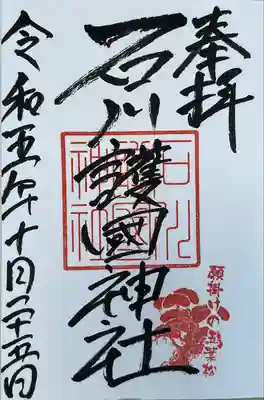 奉拝
石川護國神社
令和五年十月二十五日
石川
神社
願掛けの葉松